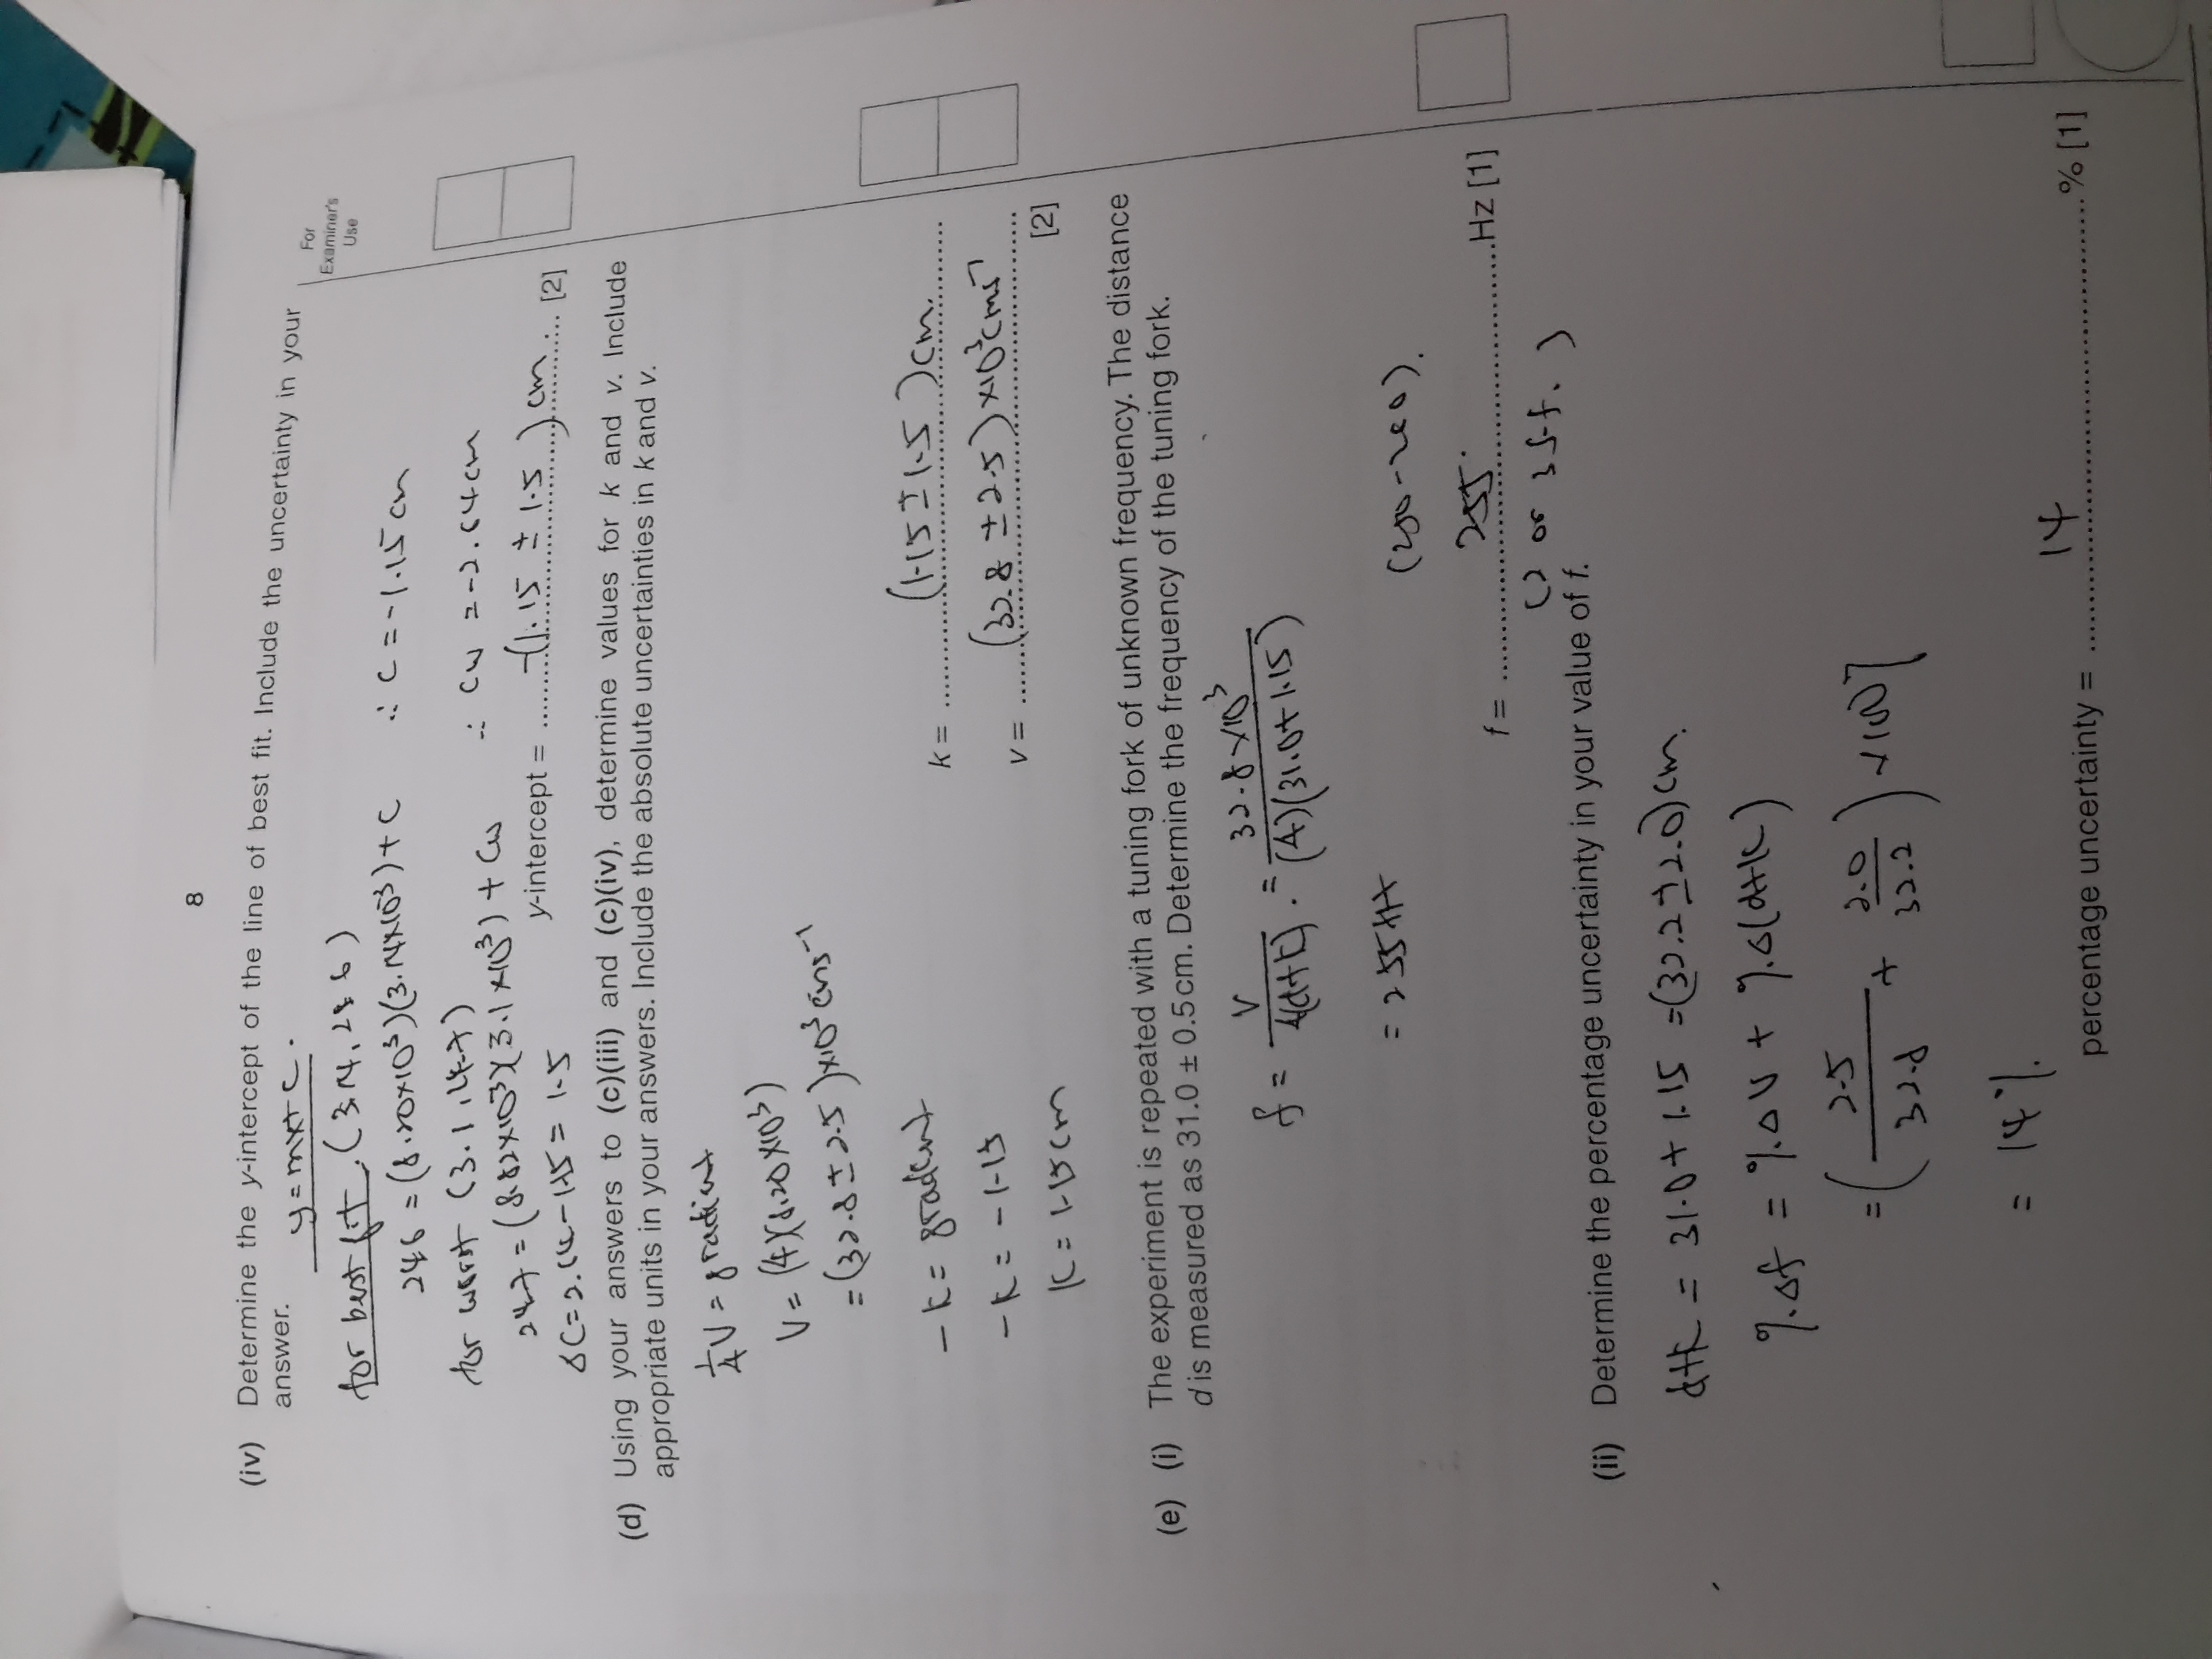 8
(iv) Determine the y-intercept of the line of best fit. Include the uncertainty in your
answer.
y = mx + c.
For
Examiner's
Use
for best fit. (3.14, 24.6)
24.6 = (8.20×10³)(3.14×10⁻³) + C ∴ C = -1.15 cm
for worst (3.1, 24.7)
24.7 = (8.82×10³)(3.1×10⁻³) + Cw ∴ Cw = -2.64 cm
y-intercept = -(1.15 ± 1.5) cm. [2]
ΔC = 2.64 - 1.15 = 1.5
(d) Using your answers to (c)(iii) and (c)(iv), determine values for k and v. Include
appropriate units in your answers. Include the absolute uncertainties in k and v.
1/4 V = gradient
V = (4)(8.20×10³)
= (32.8 ± 2.5)×10³ cms⁻¹
-k = gradient
k = (1.15 ± 1.5) cm.
-k = -1.15
v = (32.8 ± 2.5)×10³ cms⁻¹
[2]
k = 1.15 cm
(e) (i) The experiment is repeated with a tuning fork of unknown frequency. The distance
d is measured as 31.0 ± 0.5 cm. Determine the frequency of the tuning fork.
f = V / 4(d+k) = 32.8×10³ / (4)(31.0+1.15)
= 255 Hz
(250-260).
f = 255 Hz [1]
(2 or 3 s.f.)
(ii) Determine the percentage uncertainty in your value of f.
d+k = 31.0 + 1.15 = (32.2 ± 2.0) cm.
%Δf = %ΔV + %Δ(d+k)
= (2.5 / 32.8 + 2.0 / 32.2) ×100%
= 14%.
percentage uncertainty = 14 % [1]